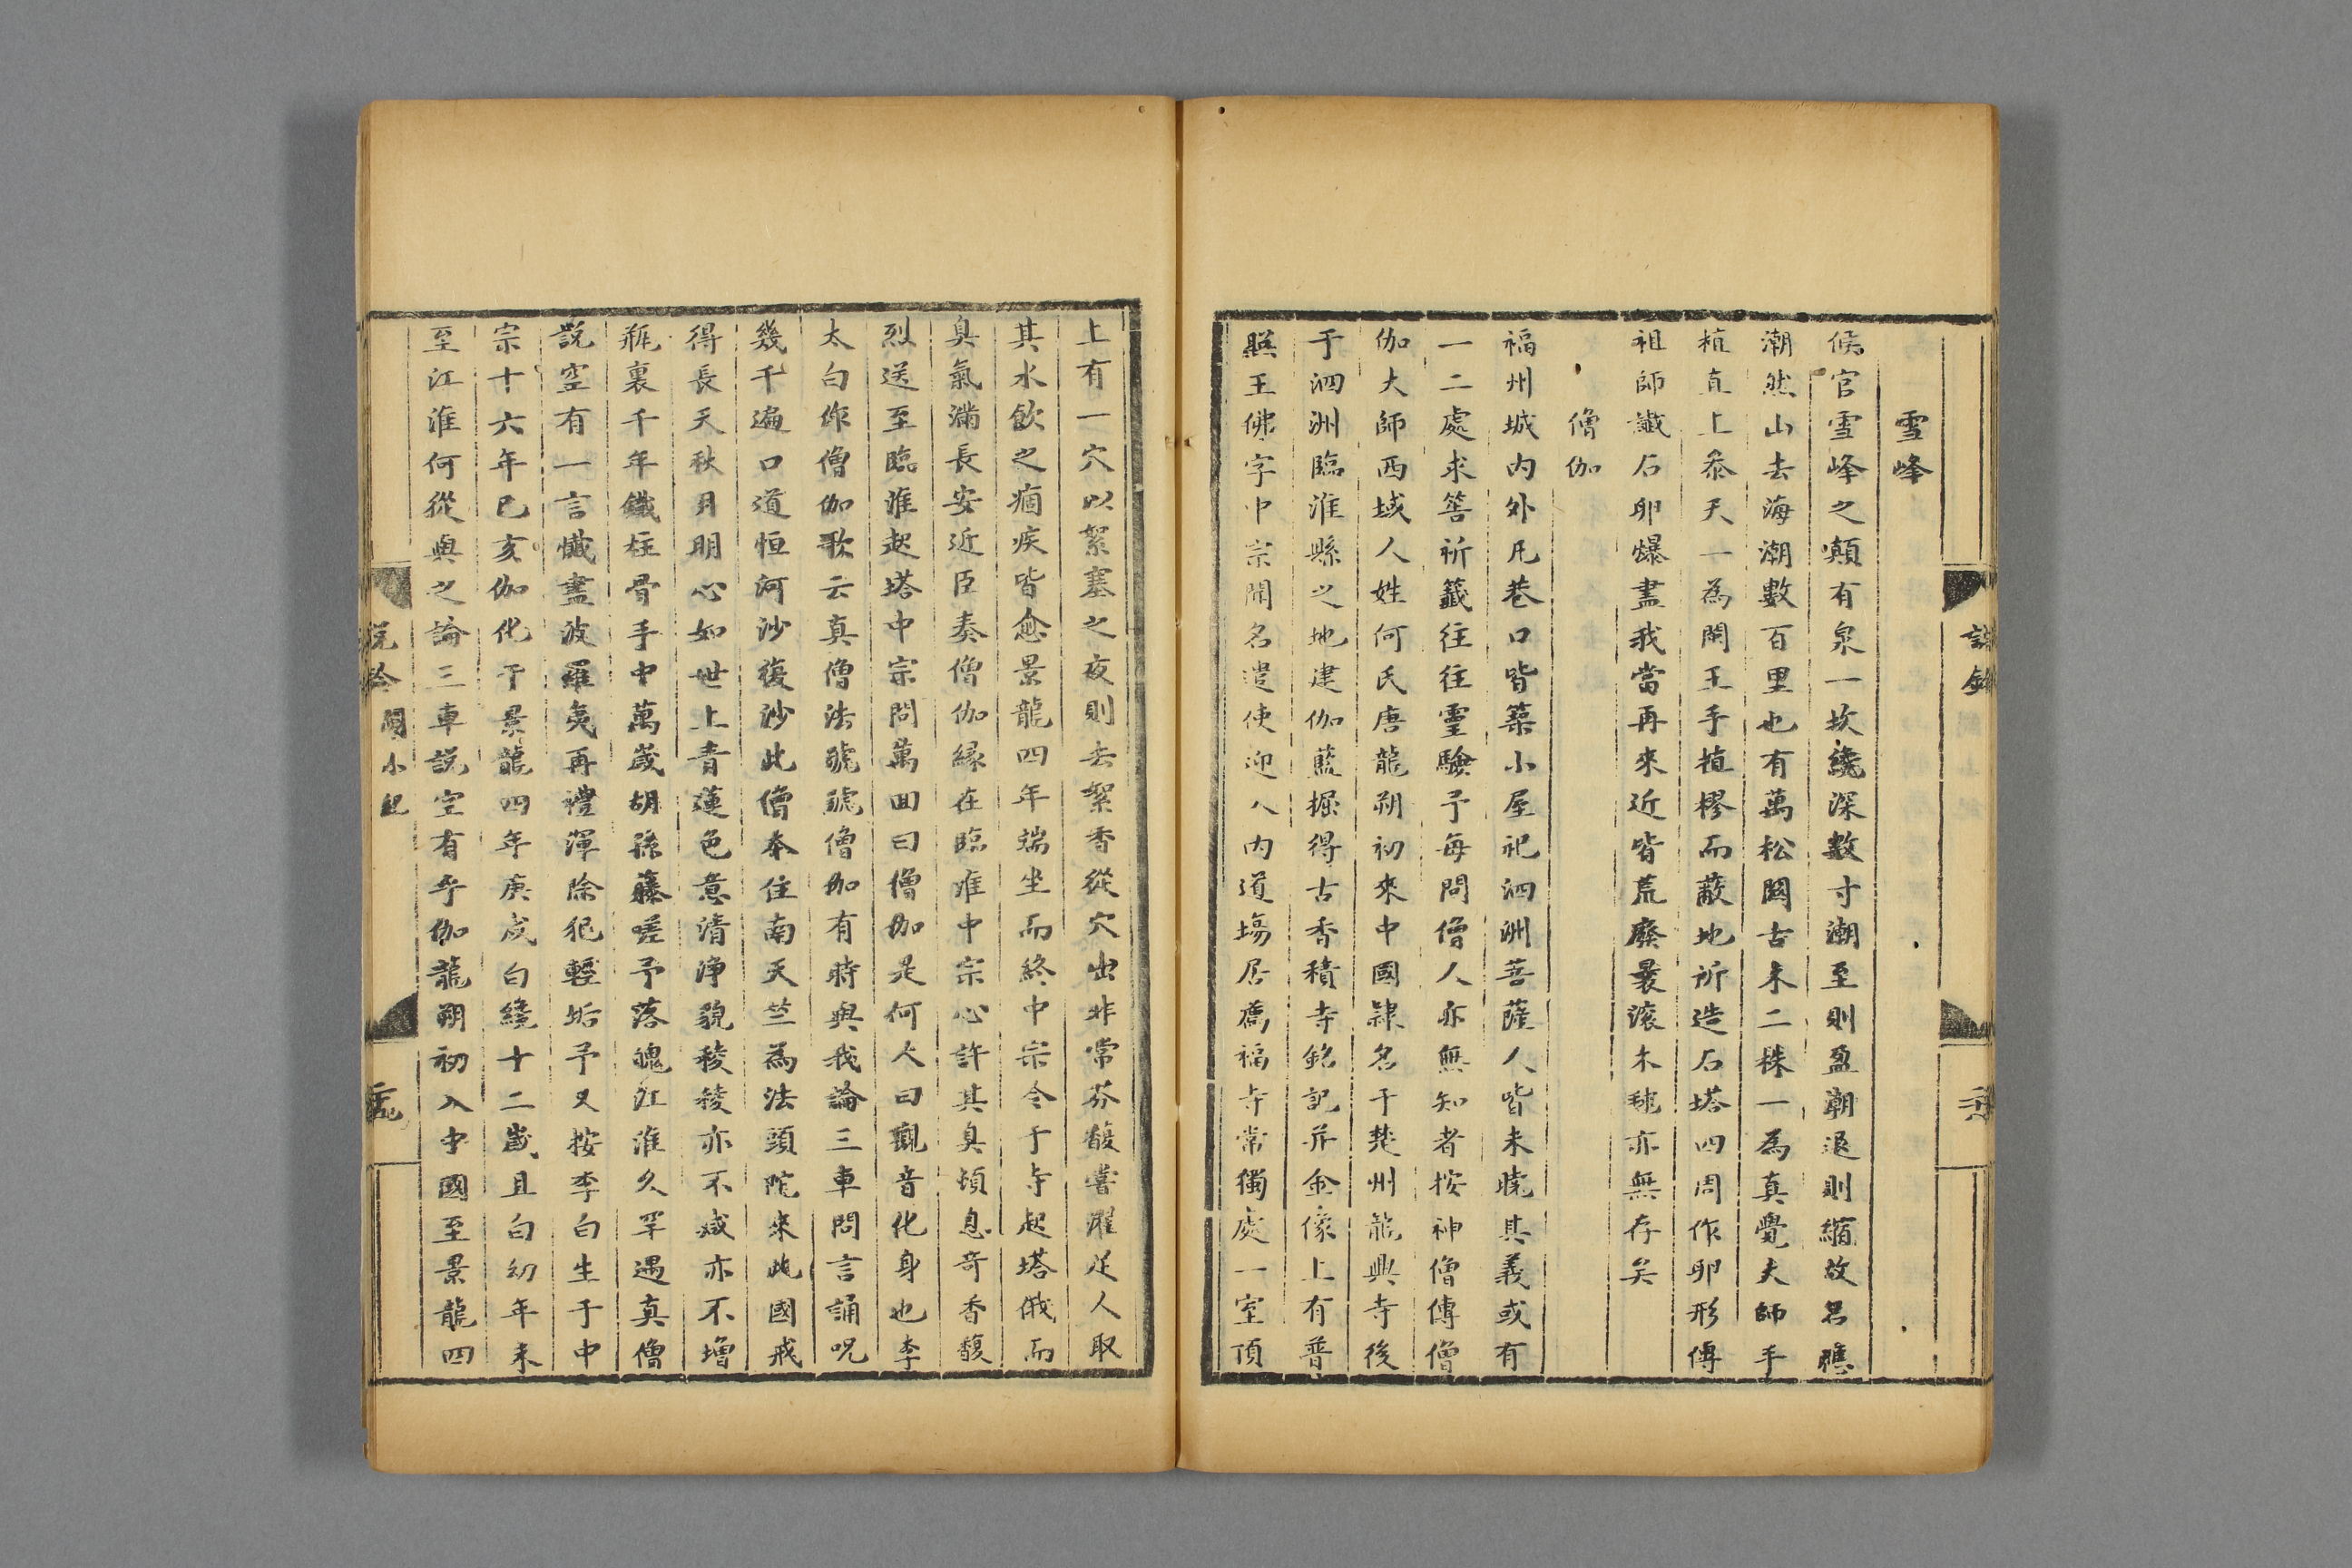 雪峰
侯官雪峰之顛有泉一坎纔深數寸潮至則盈潮退則縮故名應
潮然山去海潮數百里也有萬松關古木二株一為真覺大師手
植直上叅天一為閩王手植樛而蔽地所造石塔四周作卵形傳
祖師讖石卵爆盡我當再來近皆荒廢曩滚木毬亦無存矣
僧伽
福州城内外凡巷口皆築小屋祀泗洲菩薩人皆未曉其義或有
一二處求筶祈籤往往靈驗予每問僧人亦無知者按神僧傳僧
伽大師西域人姓何氏唐龍朔初來中國隷名于楚州龍興寺後
于泗洲臨淮縣之地建伽藍掘得古香積寺銘記并金像上有普
照王佛字中宗聞名遣使迎入内道塲居薦福寺常獨處一室頂
上有一穴以絮塞之夜則去絮香從穴出非常芬馥嘗濯足人取
其水飲之痼疾皆愈景龍四年端坐而終中宗令于寺起塔俄而
臭氣滿長安近臣奏僧伽縁在臨淮中宗心許其臭頓息奇香馥
烈送至臨淮起塔中宗問萬回曰僧伽是何人曰觀音化身也李
太白作僧伽歌云真僧法號號僧伽有時與我論三車問言誦呪
幾千遍口道恒河沙復沙此僧本住南天竺為法頭陀來此國戒
得長天秋月明心如世上青蓮色意清淨貌稜稜亦不減亦不增
瓶裏千年鐵柱骨手中萬歲胡孫藤嗟予落魄江淮久罕遇真僧
説空有一言懺盡波羅夷再禮渾除犯輕垢予又按李白生于中
宗十六年己亥伽化于景龍四年庚戌白纔十二歲且白幼年未
至江淮何從與之論三車説空有乎伽龍朔初入中國至景龍四
説鈴 閩小紀